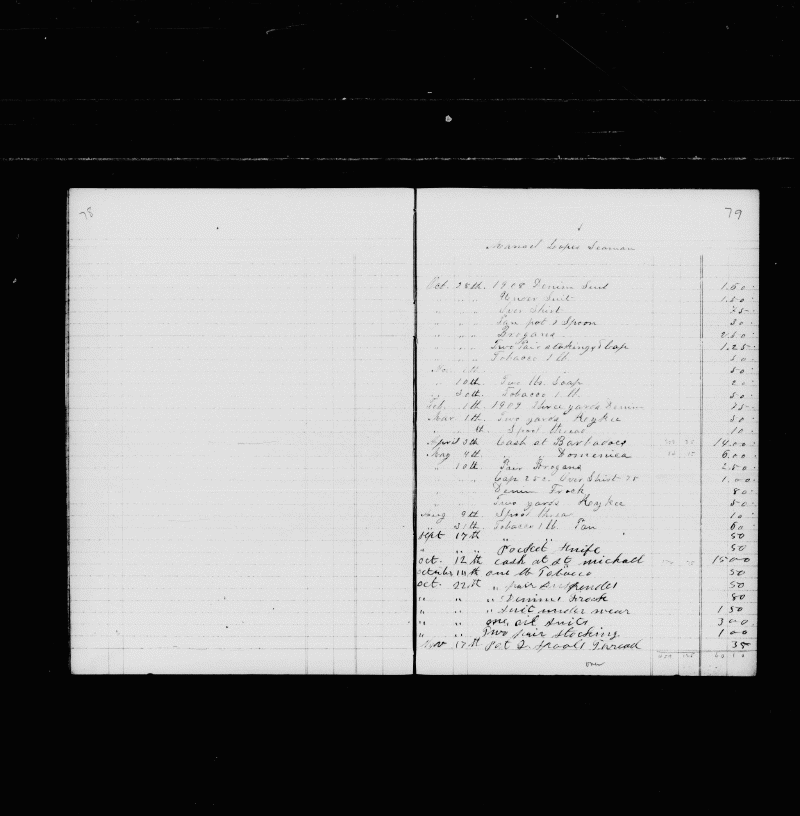 78
79
Manuel Lopes Seaman
Oct. 28th. 1908 Denim Suit 1.50
" " " Under Suit 1.50
" " " Over Shirt 75
" " " Pan pot & Spoon 30
" " " Brogans 2.50
" " " Two Pair stockings & Cap 1.25
" " " Tobacco 1 lb 50
Nov. 50
" 10th. Two lbs. Soap 20
" 30th. Tobacco 1 lb. 50
Feb. 1909 three yards Denim 75
Mar 1th. Two yards 50
" th. Spool thread 10
April 3th. Cash at Barbadoes 14.00
May 4th. " " Domenica 6.00
" 10th. Pair Brogans 2.50
Cap 25c. Over Shirt 75 1.00
Denim Frock 80
Two yards 50
Aug 9th. Spool thread 10
" 31th. Tobacco 1 lb. Pan 60
Sept 17th " " 50
" " " Pocket Knife 50
oct. 12th cash at st michall 15 00
october 14th one lb Tobacco 50
oct. 22th " pair suspender 50
" " " Denim Frock 80
" " " suit under wear 1 50
" " one oil suits 3 00
" " Two pair stocking 1 00
Nov 17th Pot 2 spools Thread 35
over